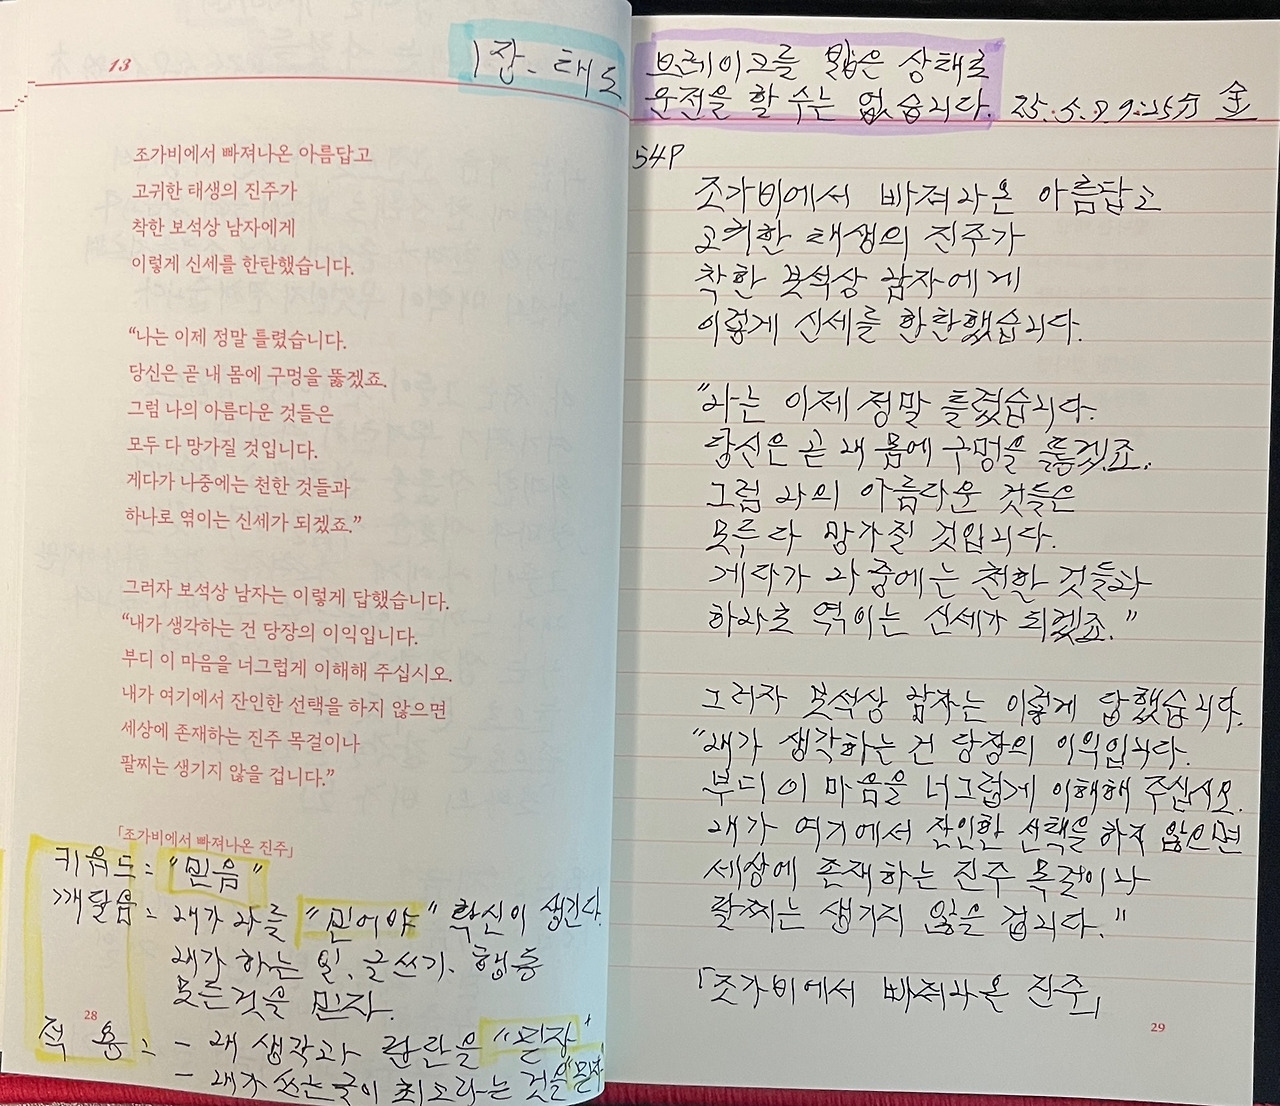 13
1장. 태도
조가비에서 빠져나온 아름답고
고귀한 태생의 진주가
착한 보석상 남자에게
이렇게 신세를 한탄했습니다.
“나는 이제 정말 틀렸습니다.
당신은 곧 내 몸에 구멍을 뚫겠죠.
그럼 나의 아름다운 것들은
모두 다 망가질 것입니다.
게다가 나중에는 천한 것들과
하나로 엮이는 신세가 되겠죠.”
그러자 보석상 남자는 이렇게 답했습니다.
“내가 생각하는 건 당장의 이익입니다.
부디 이 마음을 너그럽게 이해해 주십시오.
내가 여기에서 잔인한 선택을 하지 않으면
세상에 존재하는 진주 목걸이나
팔찌는 생기지 않을 겁니다.”
「조가비에서 빠져나온 진주」
키워드 = “믿음”
깨달음 = 내가 나를 “믿어야” 확신이 생긴다.
내가 하는 일. 글쓰기. 행동
모든것을 믿자.
28
적 용 = - 내 생각과 판단을 “믿자”
- 내가 쓰는글이 최고라는 것을 “믿자”
브레이크를 밟은 상태로
운전을 할 수는 없습니다. 25.5.9.9:25分 金
54P
조가비에서 빠져나온 아름답고
고귀한 태생의 진주가
착한 보석상 남자에게
이렇게 신세를 한탄했습니다.
“나는 이제 정말 틀렸습니다.
당신은 곧 내 몸에 구멍을 뚫겠죠.
그럼 나의 아름다운 것들은
모두 다 망가질 것입니다.
게다가 나중에는 천한 것들과
하나로 엮이는 신세가 되겠죠.”
그러자 보석상 남자는 이렇게 답했습니다.
“내가 생각하는 건 당장의 이익입니다.
부디 이 마음을 너그럽게 이해해 주십시오.
내가 여기에서 잔인한 선택을 하지 않으면
세상에 존재하는 진주 목걸이나
팔찌는 생기지 않을 겁니다.”
「조가비에서 빠져나온 진주」
29